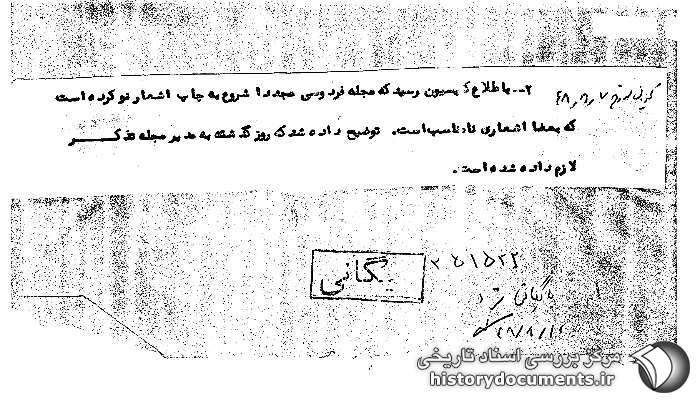 ۲-- باطلاع کمیسیون رسید که مجله فردوسی مجددا شروع به چاپ اشعار نو کرده است
که بعضا اشعاری نامناسب است. توضیح داده شد که روز گذشته به مدیر مجله تذکر
لازم داده شده است.
بایگانی
مرکز بررسی اسناد تاریخی
historydocuments.ir